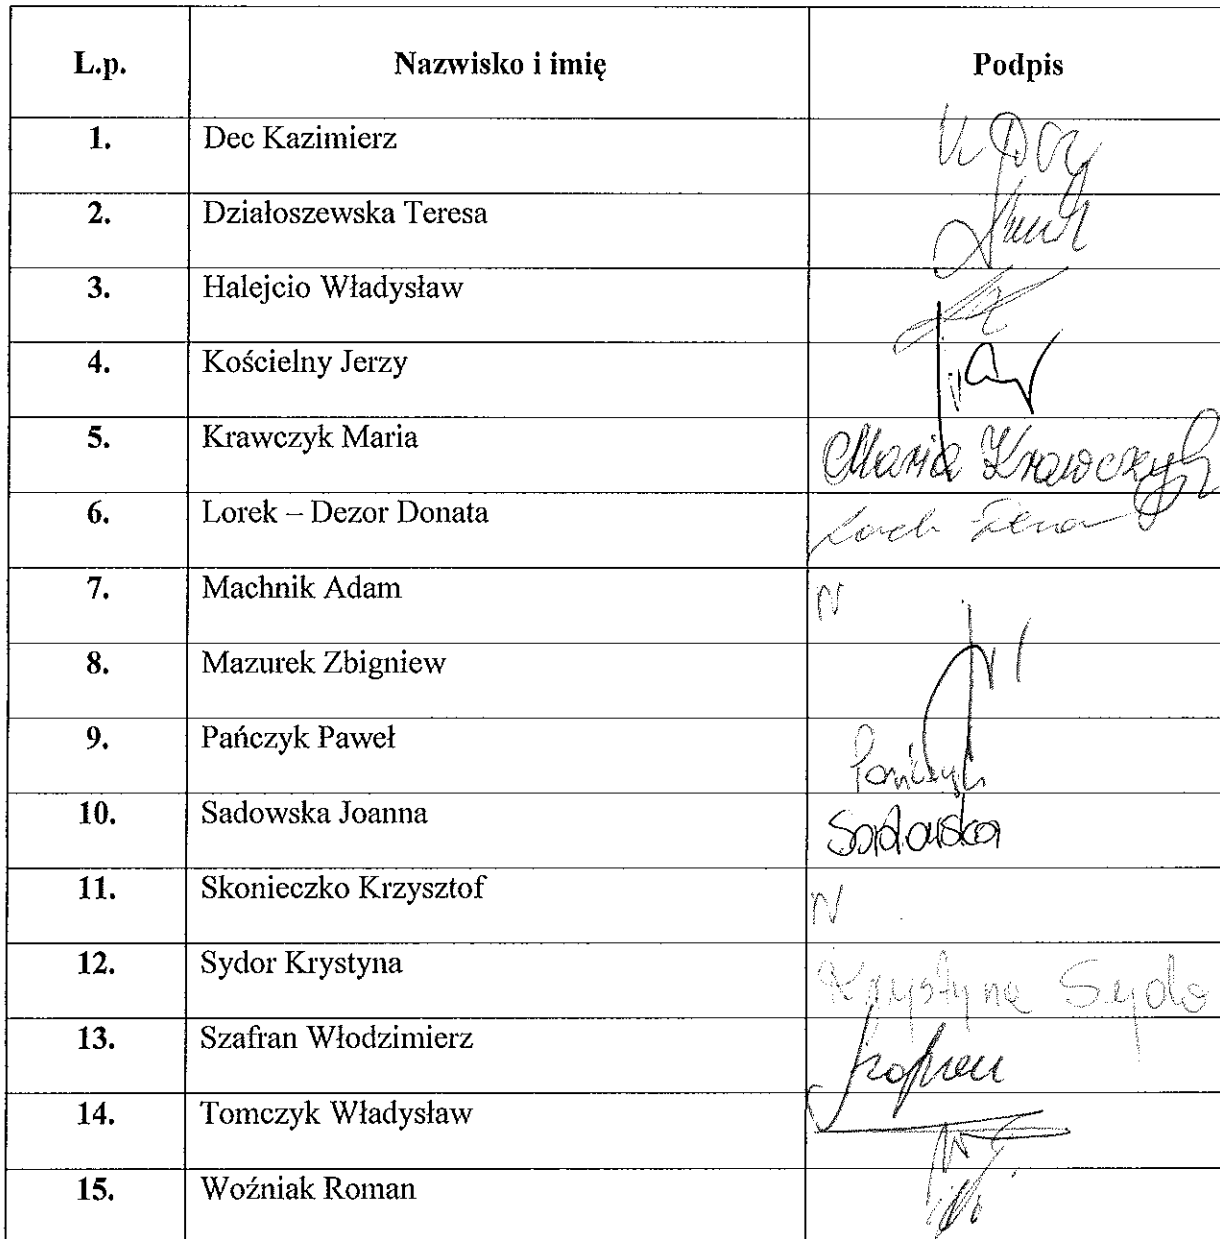 L.p. Nazwisko i imię Podpis
1. Dec Kazimierz
2. Działoszewska Teresa
3. Halejcio Władysław
4. Kościelny Jerzy
5. Krawczyk Maria Maria Krawczyk
6. Lorek – Dezor Donata
7. Machnik Adam N
8. Mazurek Zbigniew
9. Pańczyk Paweł Pańczyk
10. Sadowska Joanna Sadowska
11. Skonieczko Krzysztof N
12. Sydor Krystyna Krystyna Sydo
13. Szafran Włodzimierz Szafran
14. Tomczyk Władysław
15. Woźniak Roman